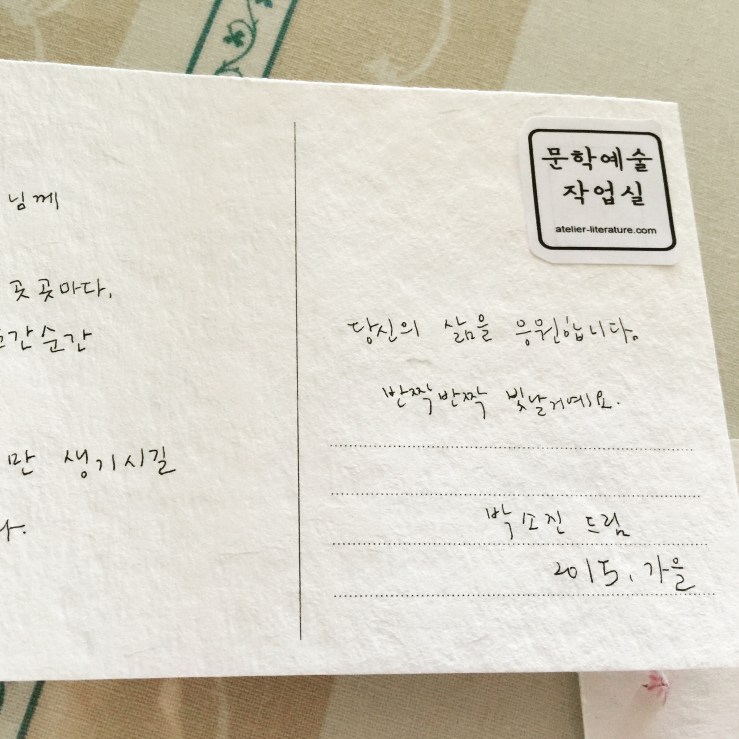 님께
곳곳마다,
순간
만 생기시길
다.
문학예술
작업실
atelier-literature.com
당신의 삶을 응원합니다.
반짝반짝 빛날거예요.
박소진 드림
2015, 가을